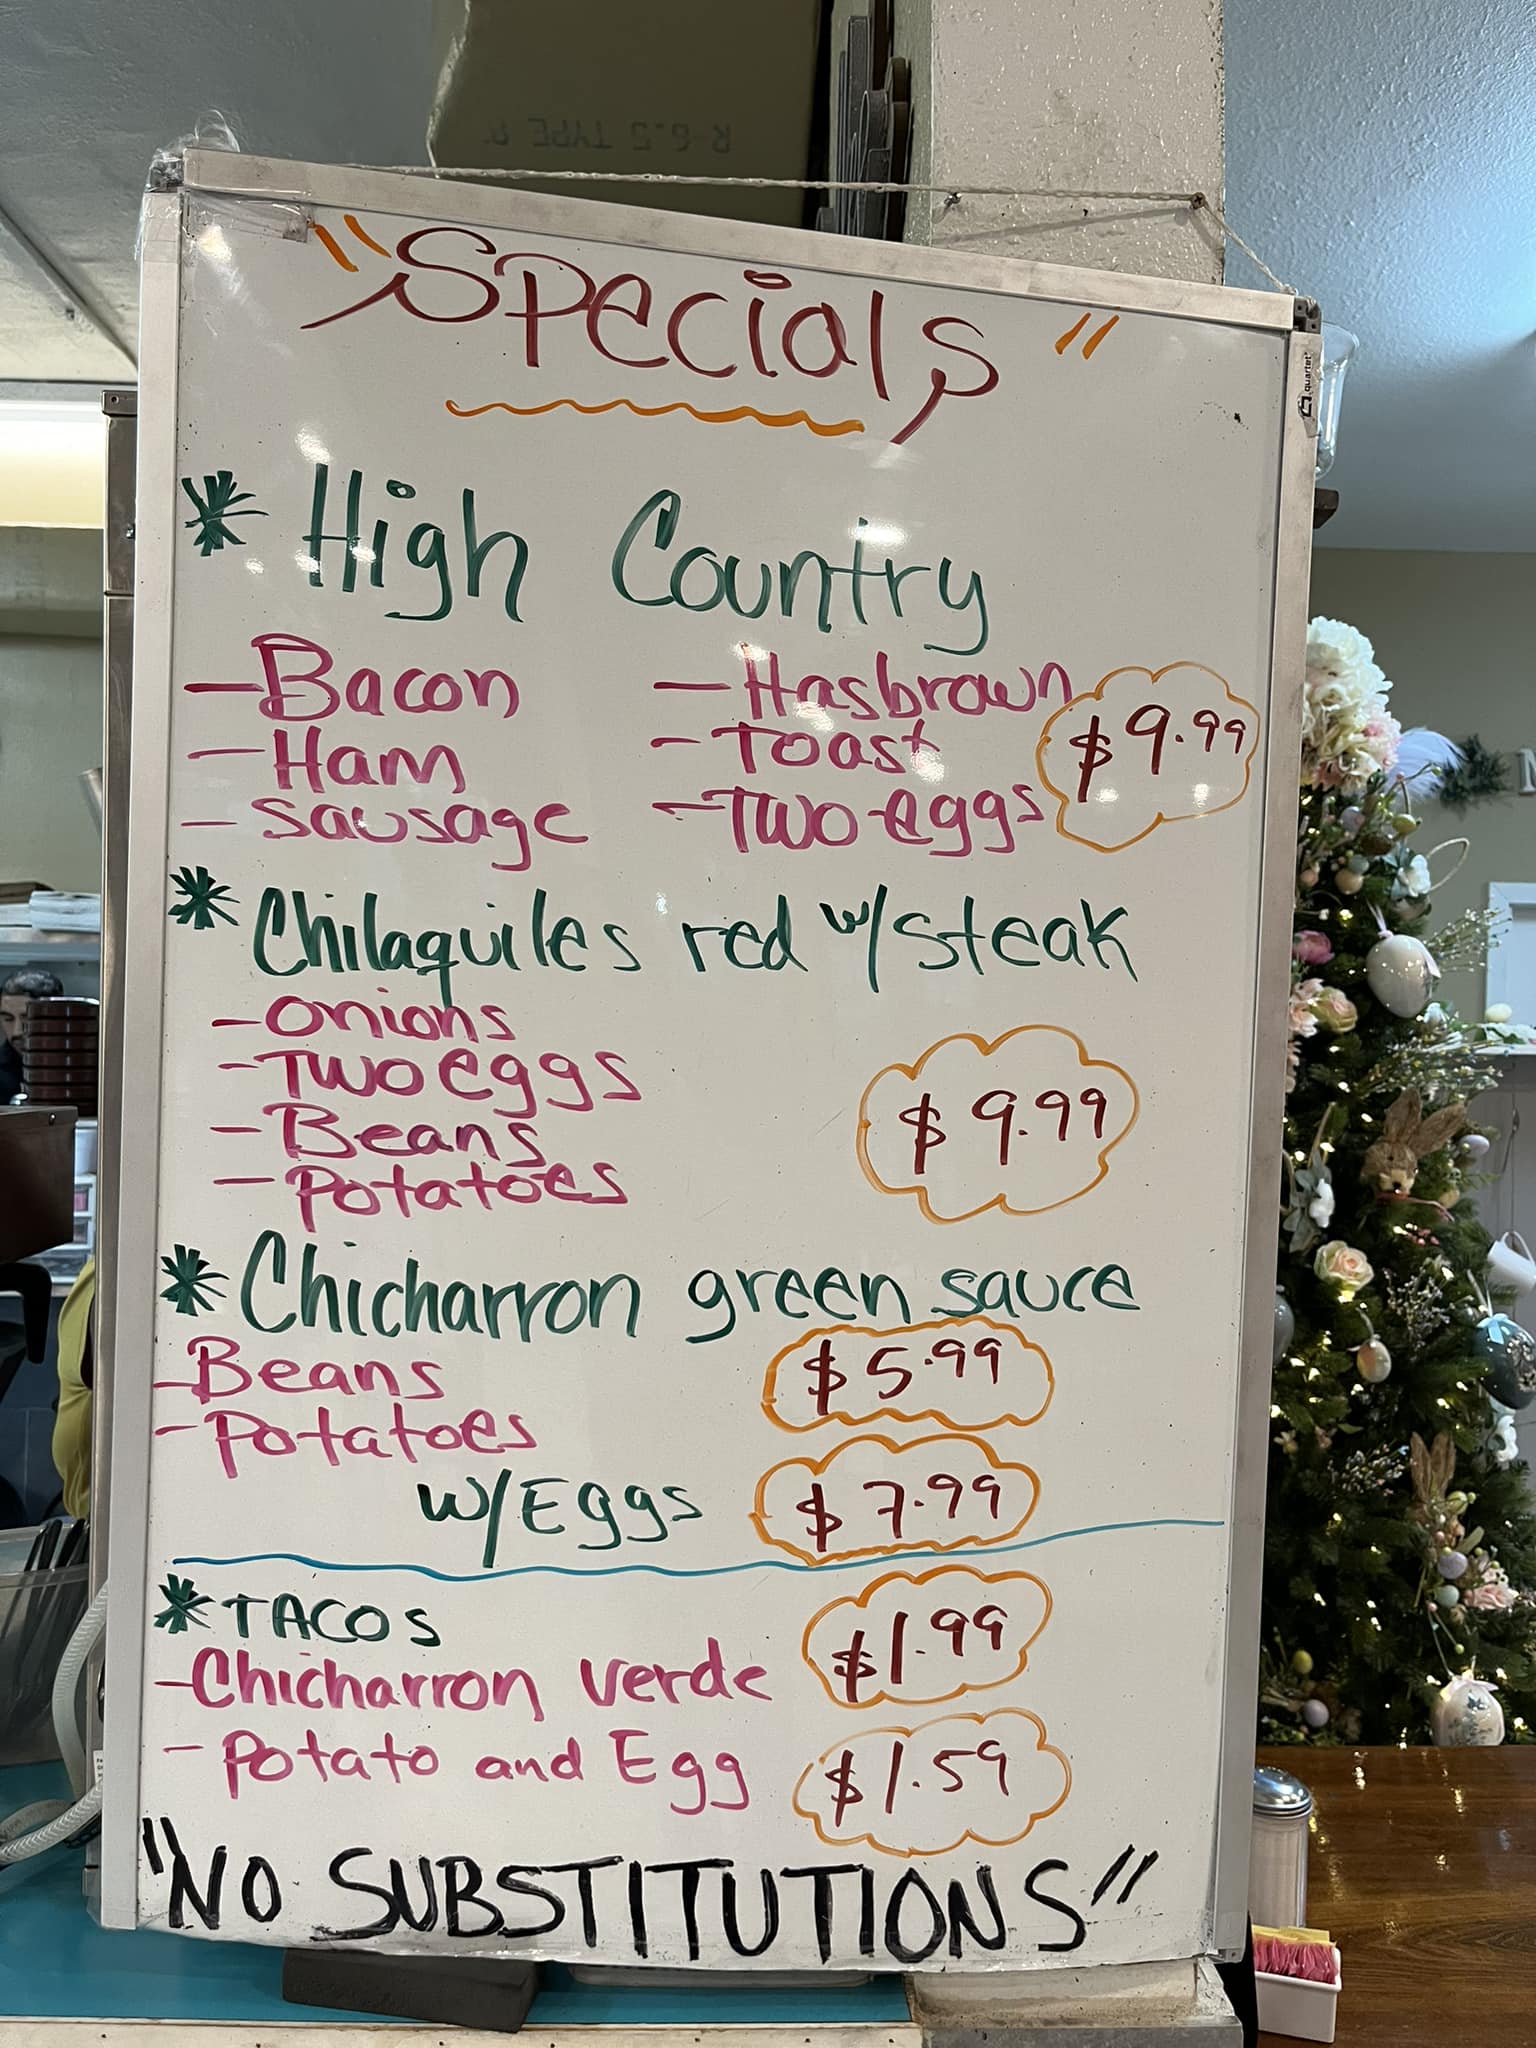 R-6.5 TYPE
"Specials"
quartet
* High Country
- Bacon
- Ham
- Sausage
- Hasbrown
- Toast
- Two eggs
$9.99
* Chilaquiles red w/ steak
- Onions
- Two eggs
- Beans
- Potatoes
$9.99
* Chicharron green sauce
- Beans
- Potatoes
$5.99
w/Eggs $7.99
* TACOS
- Chicharron verde $1.99
- Potato and Egg $1.59
"NO SUBSTITUTIONS"